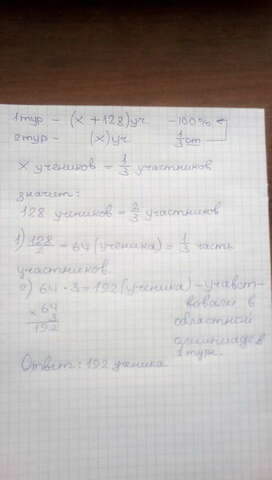 1 тур - (x + 128) уч - 100%
2 тур - (x) уч 1/3 от
x учеников = 1/3 участников
значит:
128 учеников = 2/3 участников
1) 128/2 = 64 (ученика) = 1/3 часть
участников
2) 64 · 3 = 192 (ученика) - учавст-
вовали в
областной
олимпиаде в
1 туре.
× 64
3
192
Ответ: 192 ученика